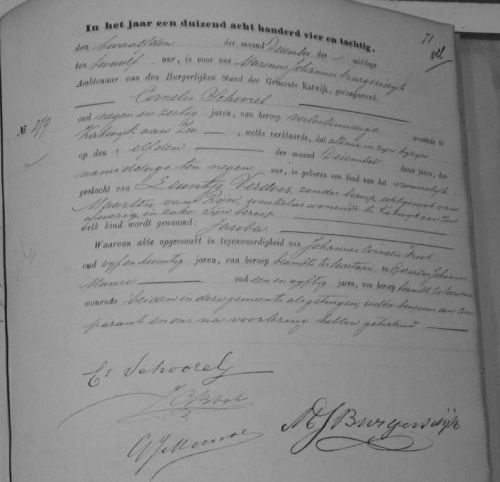 71
In het jaar een duizend acht honderd vier en tachtig,
den twaalfden der maand December des middags
ten twaalf uur, is voor ons Marinus Johannes Burgersdijk
Ambtenaar van den Burgerlijken Stand der Gemeente Katwijk, gecompareerd,
Cornelis Schoorel
N. 219
oud negen en zestig jaren, van beroep verloskundige wonende te
Katwijk aan Zee, welke verklaarde, dat
op den elfden der maand December dezes jaars, des
namiddags ten negen uur, is geboren een kind van het vrouwelijk
geslacht van Leuntje Verdoes, zonder beroep, echtgenoot van
Maarten van Rijn, winkelier wonende te Katwijk aan Zee
afwezig in zake zijn beroep
welk kind wordt genaamd: Jacoba
Waarvan akte opgemaakt in tegenwoordigheid van Johannes Cornelis
oud vijf en twintig jaren, van beroep beambte ter Secretarie en Gerardus Johannes
oud een en vijftig jaren, van beroep beambte ter Secretarie
wonende beiden in deze gemeente als getuigen, welke benevens den Com
parant en ons na voorlezing hebben geteekend
Cs Schoorel
MJ Burgersdijk